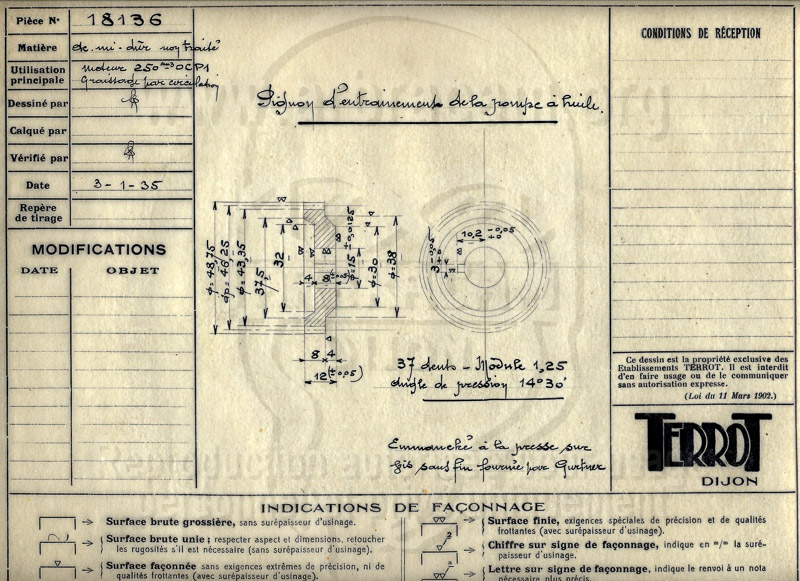 Pièce N° 18136
Matière Ac. mi-dur non traité
Utilisation principale moteur 250 OCP1
Graissage par circulation
Dessiné par
Calqué par
Vérifié par
Date 3-1-35
Repère de tirage
MODIFICATIONS
DATE OBJET
Pignon d'entrainement de la pompe à huile.
ϕ=48,75
dp=46,25
ϕ=43,35
37,5
32
4
8 (±0,05)
8
+0,0125
ϕ=15
ϕ=30
ϕ=38
8 4
12 (±0,05)
10,2 -0,05 +0
3 -0,05 +0
37 dents - Module 1,25
Angle de pression 14°30'
Emmanché à la presse sur
vis sans fin fournie par Gurtner
CONDITIONS DE RÉCEPTION
Ce dessin est la propriété exclusive des
Etablissements TERROT. Il est interdit
d'en faire usage ou de le communiquer
sans autorisation expresse.
(Loi du 11 Mars 1902.)
TERROT
DIJON
INDICATIONS DE FAÇONNAGE
Surface brute grossière, sans surépaisseur d'usinage.
Surface brute unie; respecter aspect et dimensions, retoucher
les rugosités s'il est nécessaire (sans surépaisseur d'usinage).
Surface façonnée sans exigences extrêmes de précision, ni de
qualités frottantes (avec surépaisseur d'usinage).
Surface finie, exigences spéciales de précision et de qualités
frottantes (avec surépaisseur d'usinage).
Chiffre sur signe de façonnage, indique en m/m la suré-
paisseur d'usinage.
Lettre sur signe de façonnage, indique le renvoi à un nota
nécessaire plus précis.